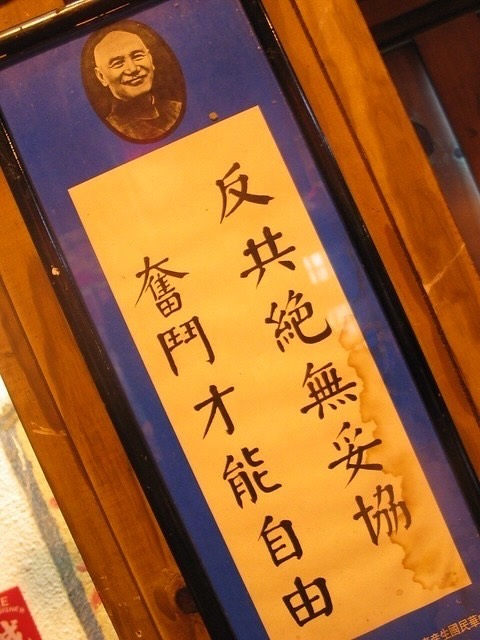 反共絕無妥協
奮鬥才能自由